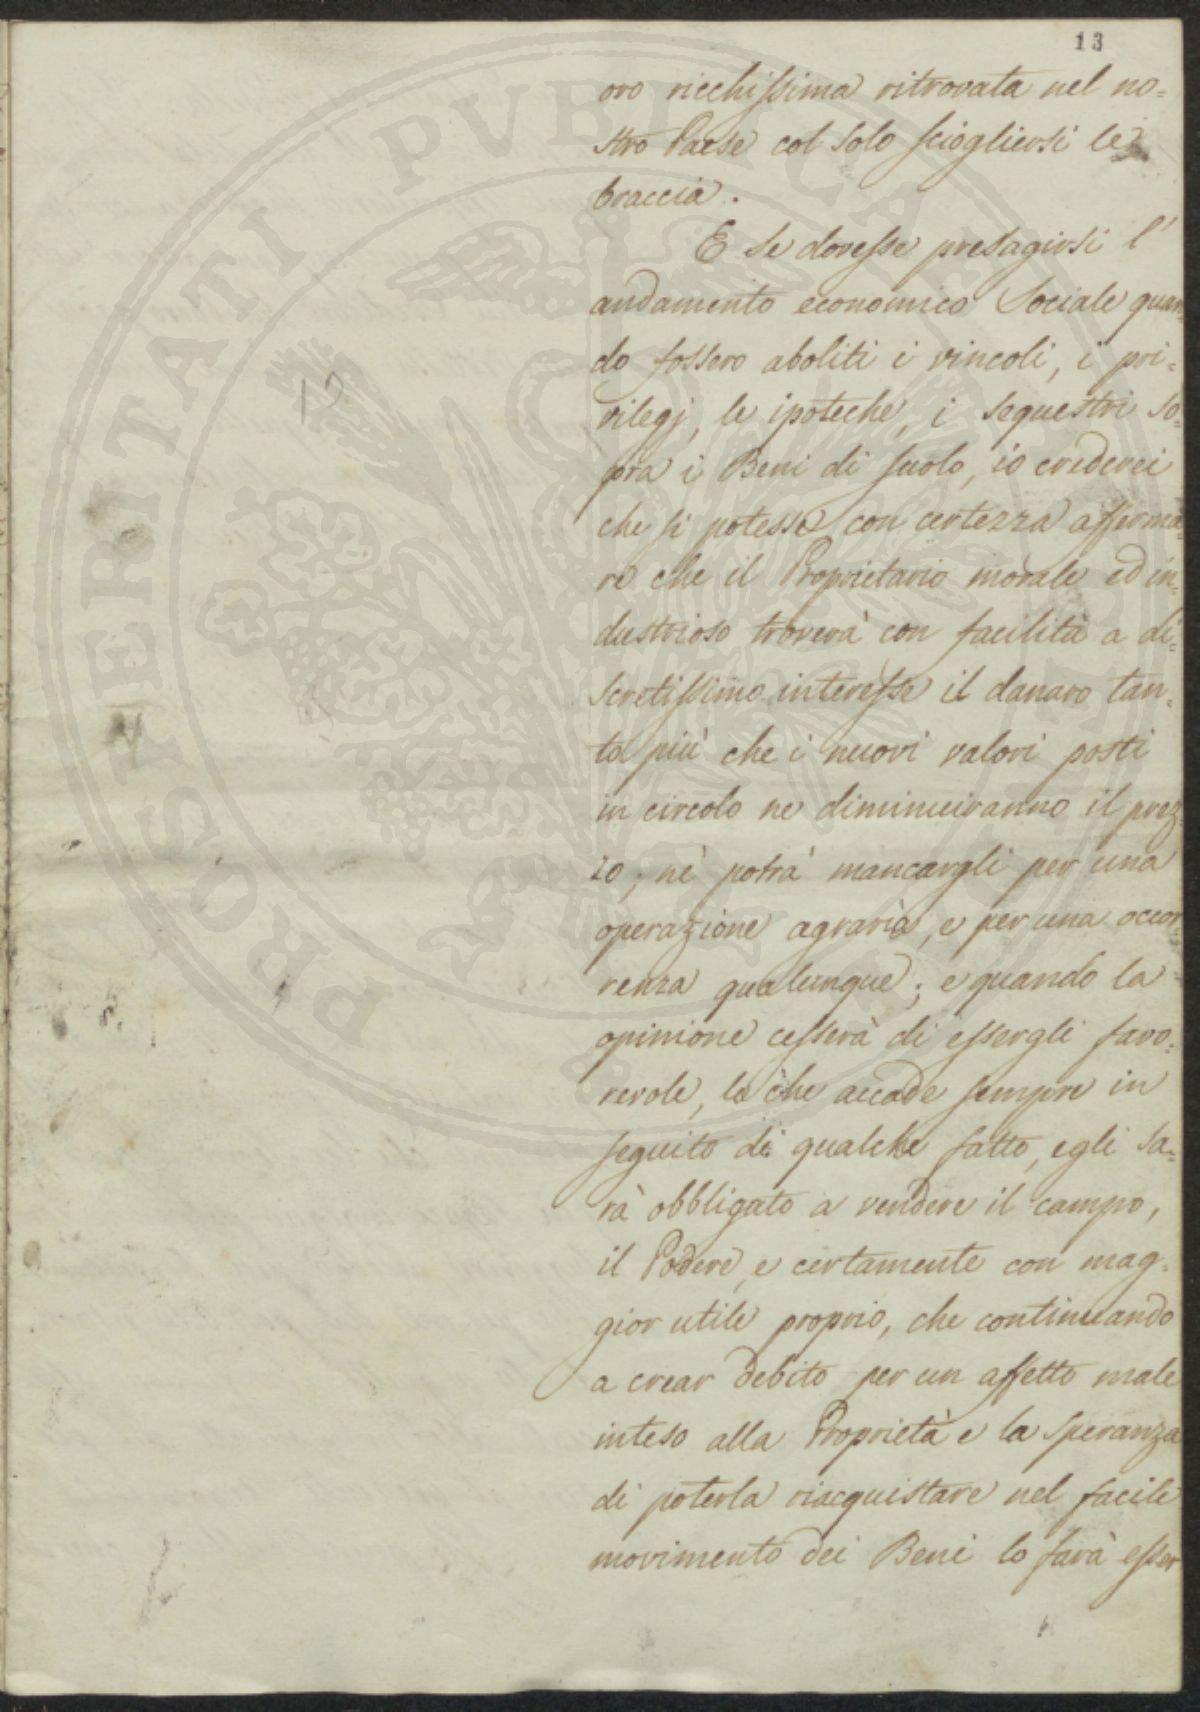 13
oro ricchissima ritrovata nel no=
stro Paese col solo sciogliersi le
braccia.
E se dovesse presagirsi l'
andamento economico Sociale quan=
do fossero aboliti i vincoli, i pri=
vilegj, le ipoteche, i sequestri so=
pra i Beni di suolo, io crederei
che si potesse con certezza afferma=
re che il Proprietario morale ed in=
dustrioso troverà con facilità a di=
scretissimo interesse il danaro tan=
to più che i nuovi valori posti
in circolo ne diminuiranno il prez
zo; nè potrà mancargli per una
operazione agraria, e per una occor=
renza qualunque; e quando la
opinione cesserà di essergli favo=
revole, lo che accade sempre in
seguito di qualche fatto, egli sa=
rà obbligato a vendere il campo,
il Podere, e certamente con mag=
gior utile proprio, che continuando
a crear debito per un affetto male
inteso alla Proprietà e la speranza
di poterla riacquistare nel facile
movimento dei Beni lo farà esser
12
PROSPERITATI PUBLICAE